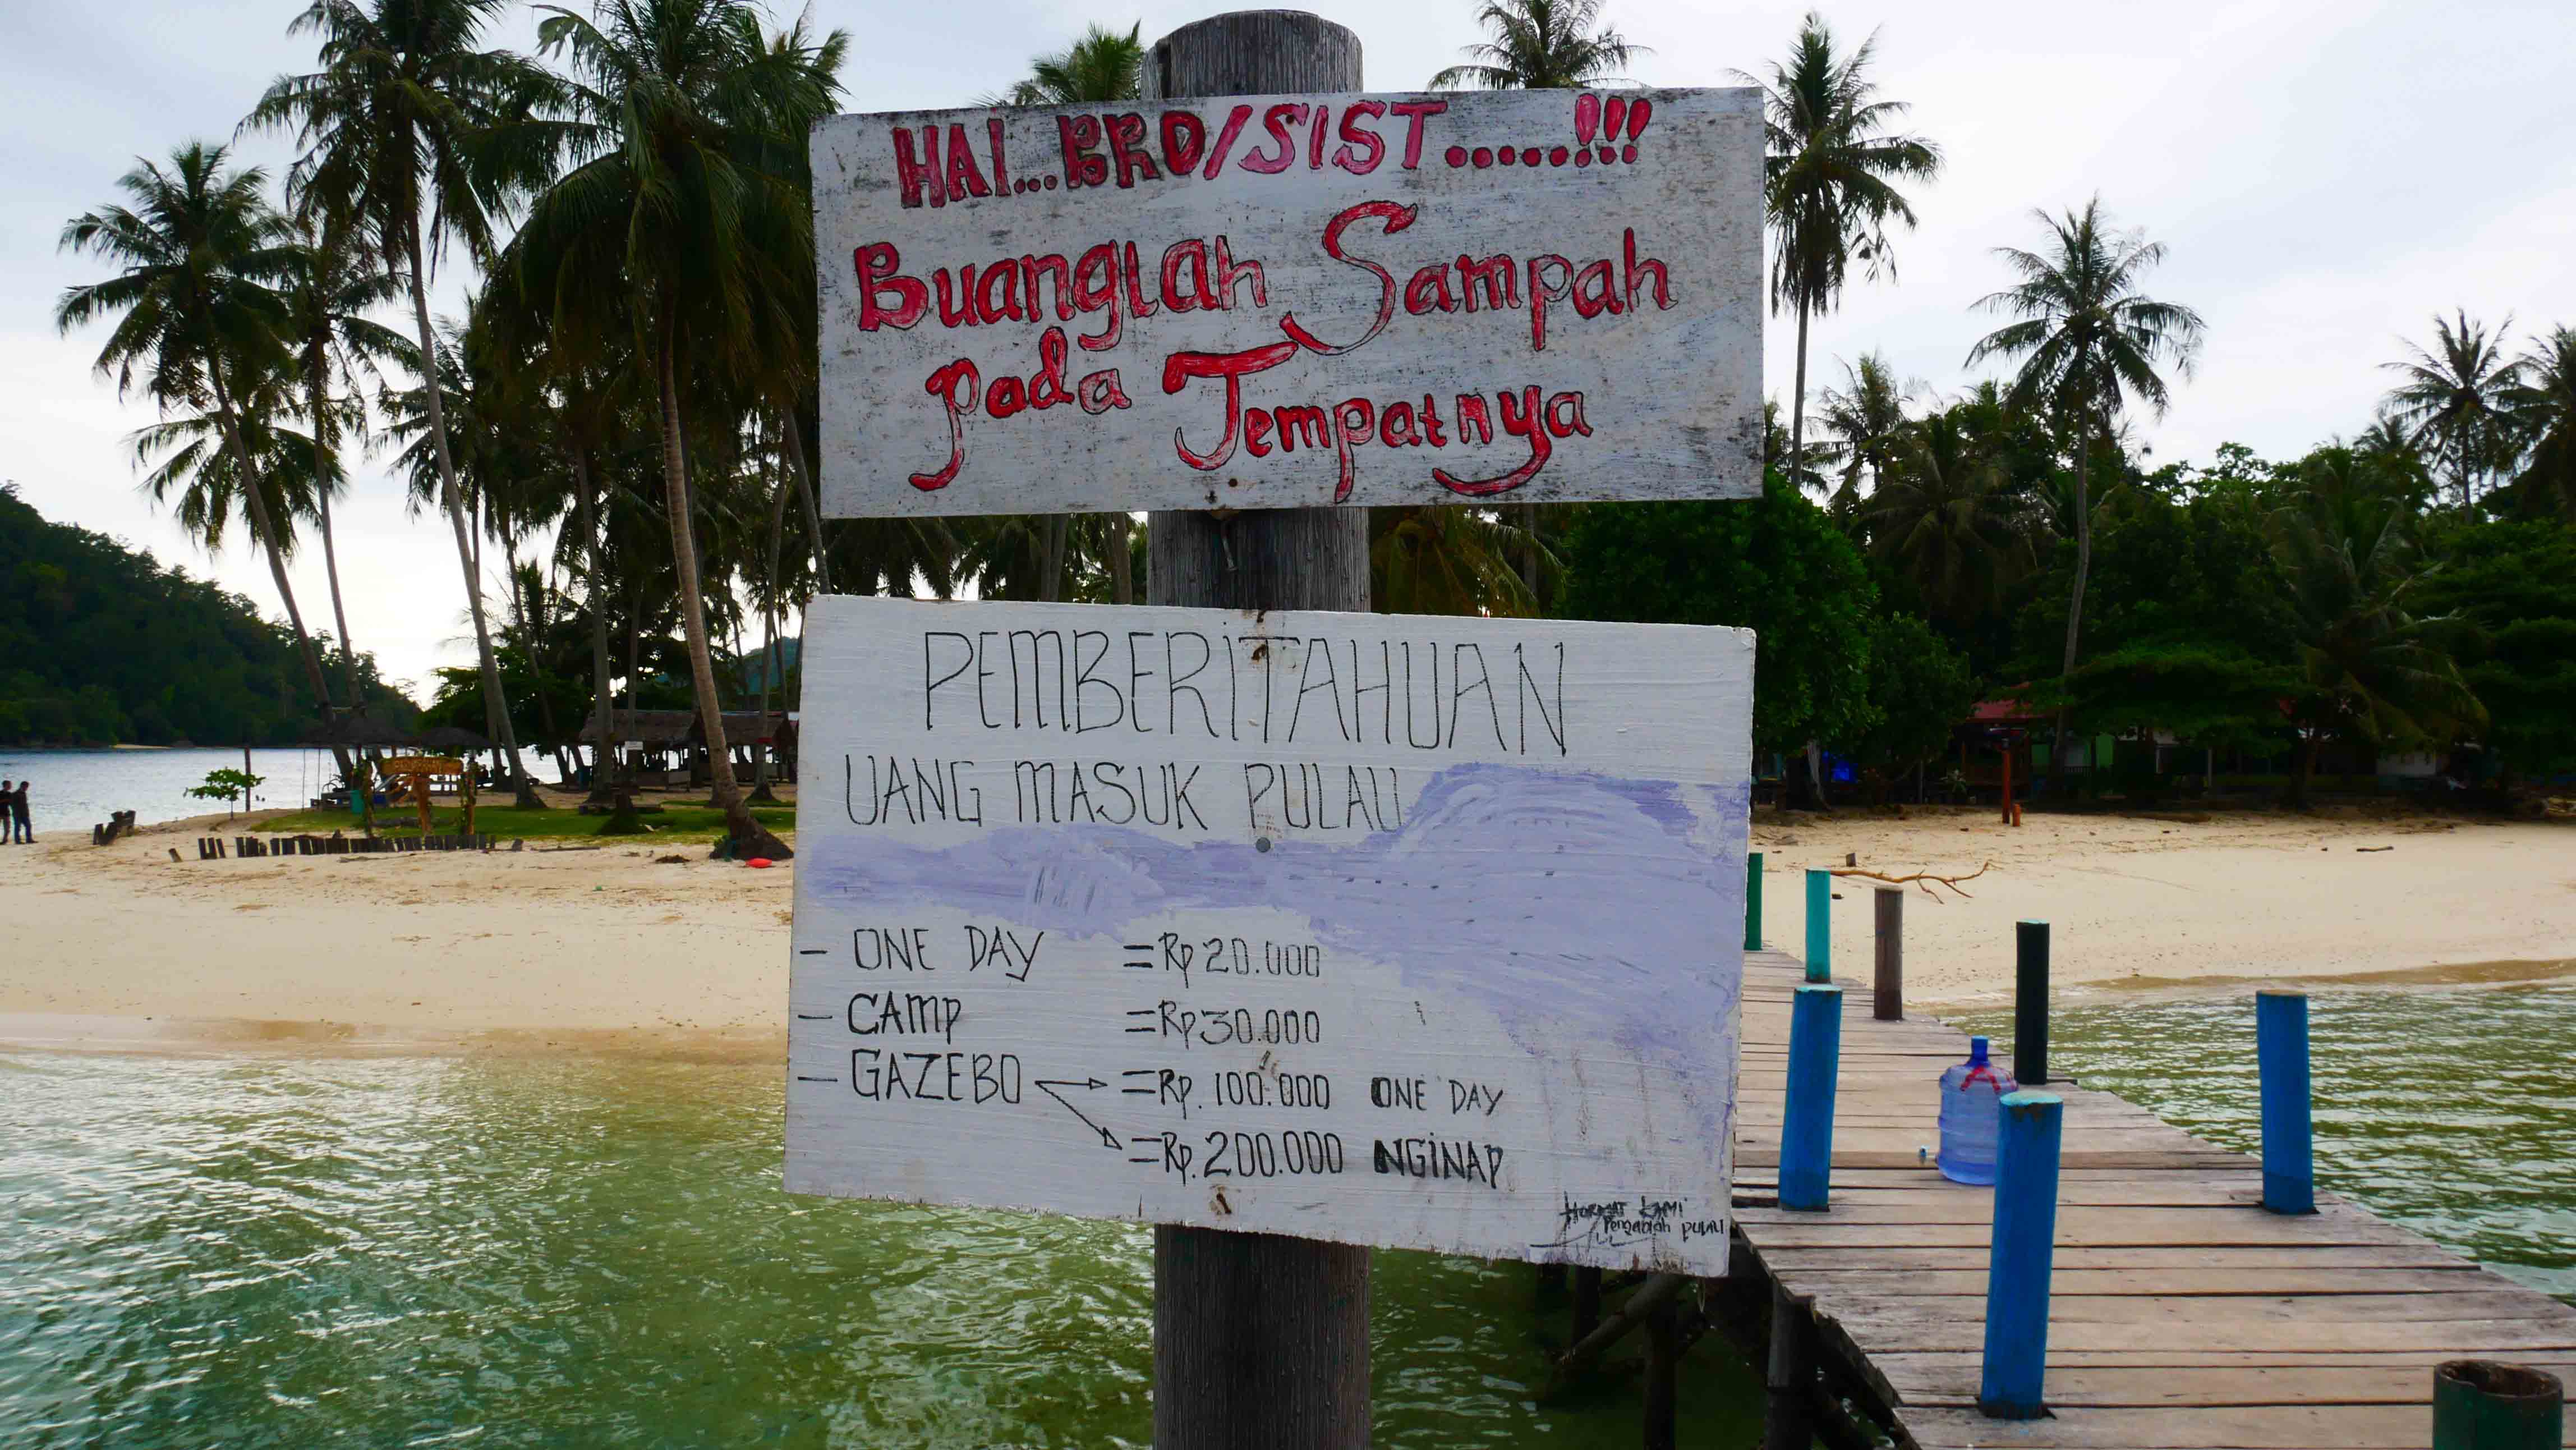 HAI...BRO/SIST.....!!!
Buanglah Sampah
pada Tempatnya
PEMBERITAHUAN
UANG MASUK PULAU
- ONE DAY = Rp 20.000
- CAMP = Rp 30.000
- GAZEBO → = Rp. 100.000 ONE DAY
→ = Rp. 200.000 NGINAP
HORMAT KAMI
PULAU